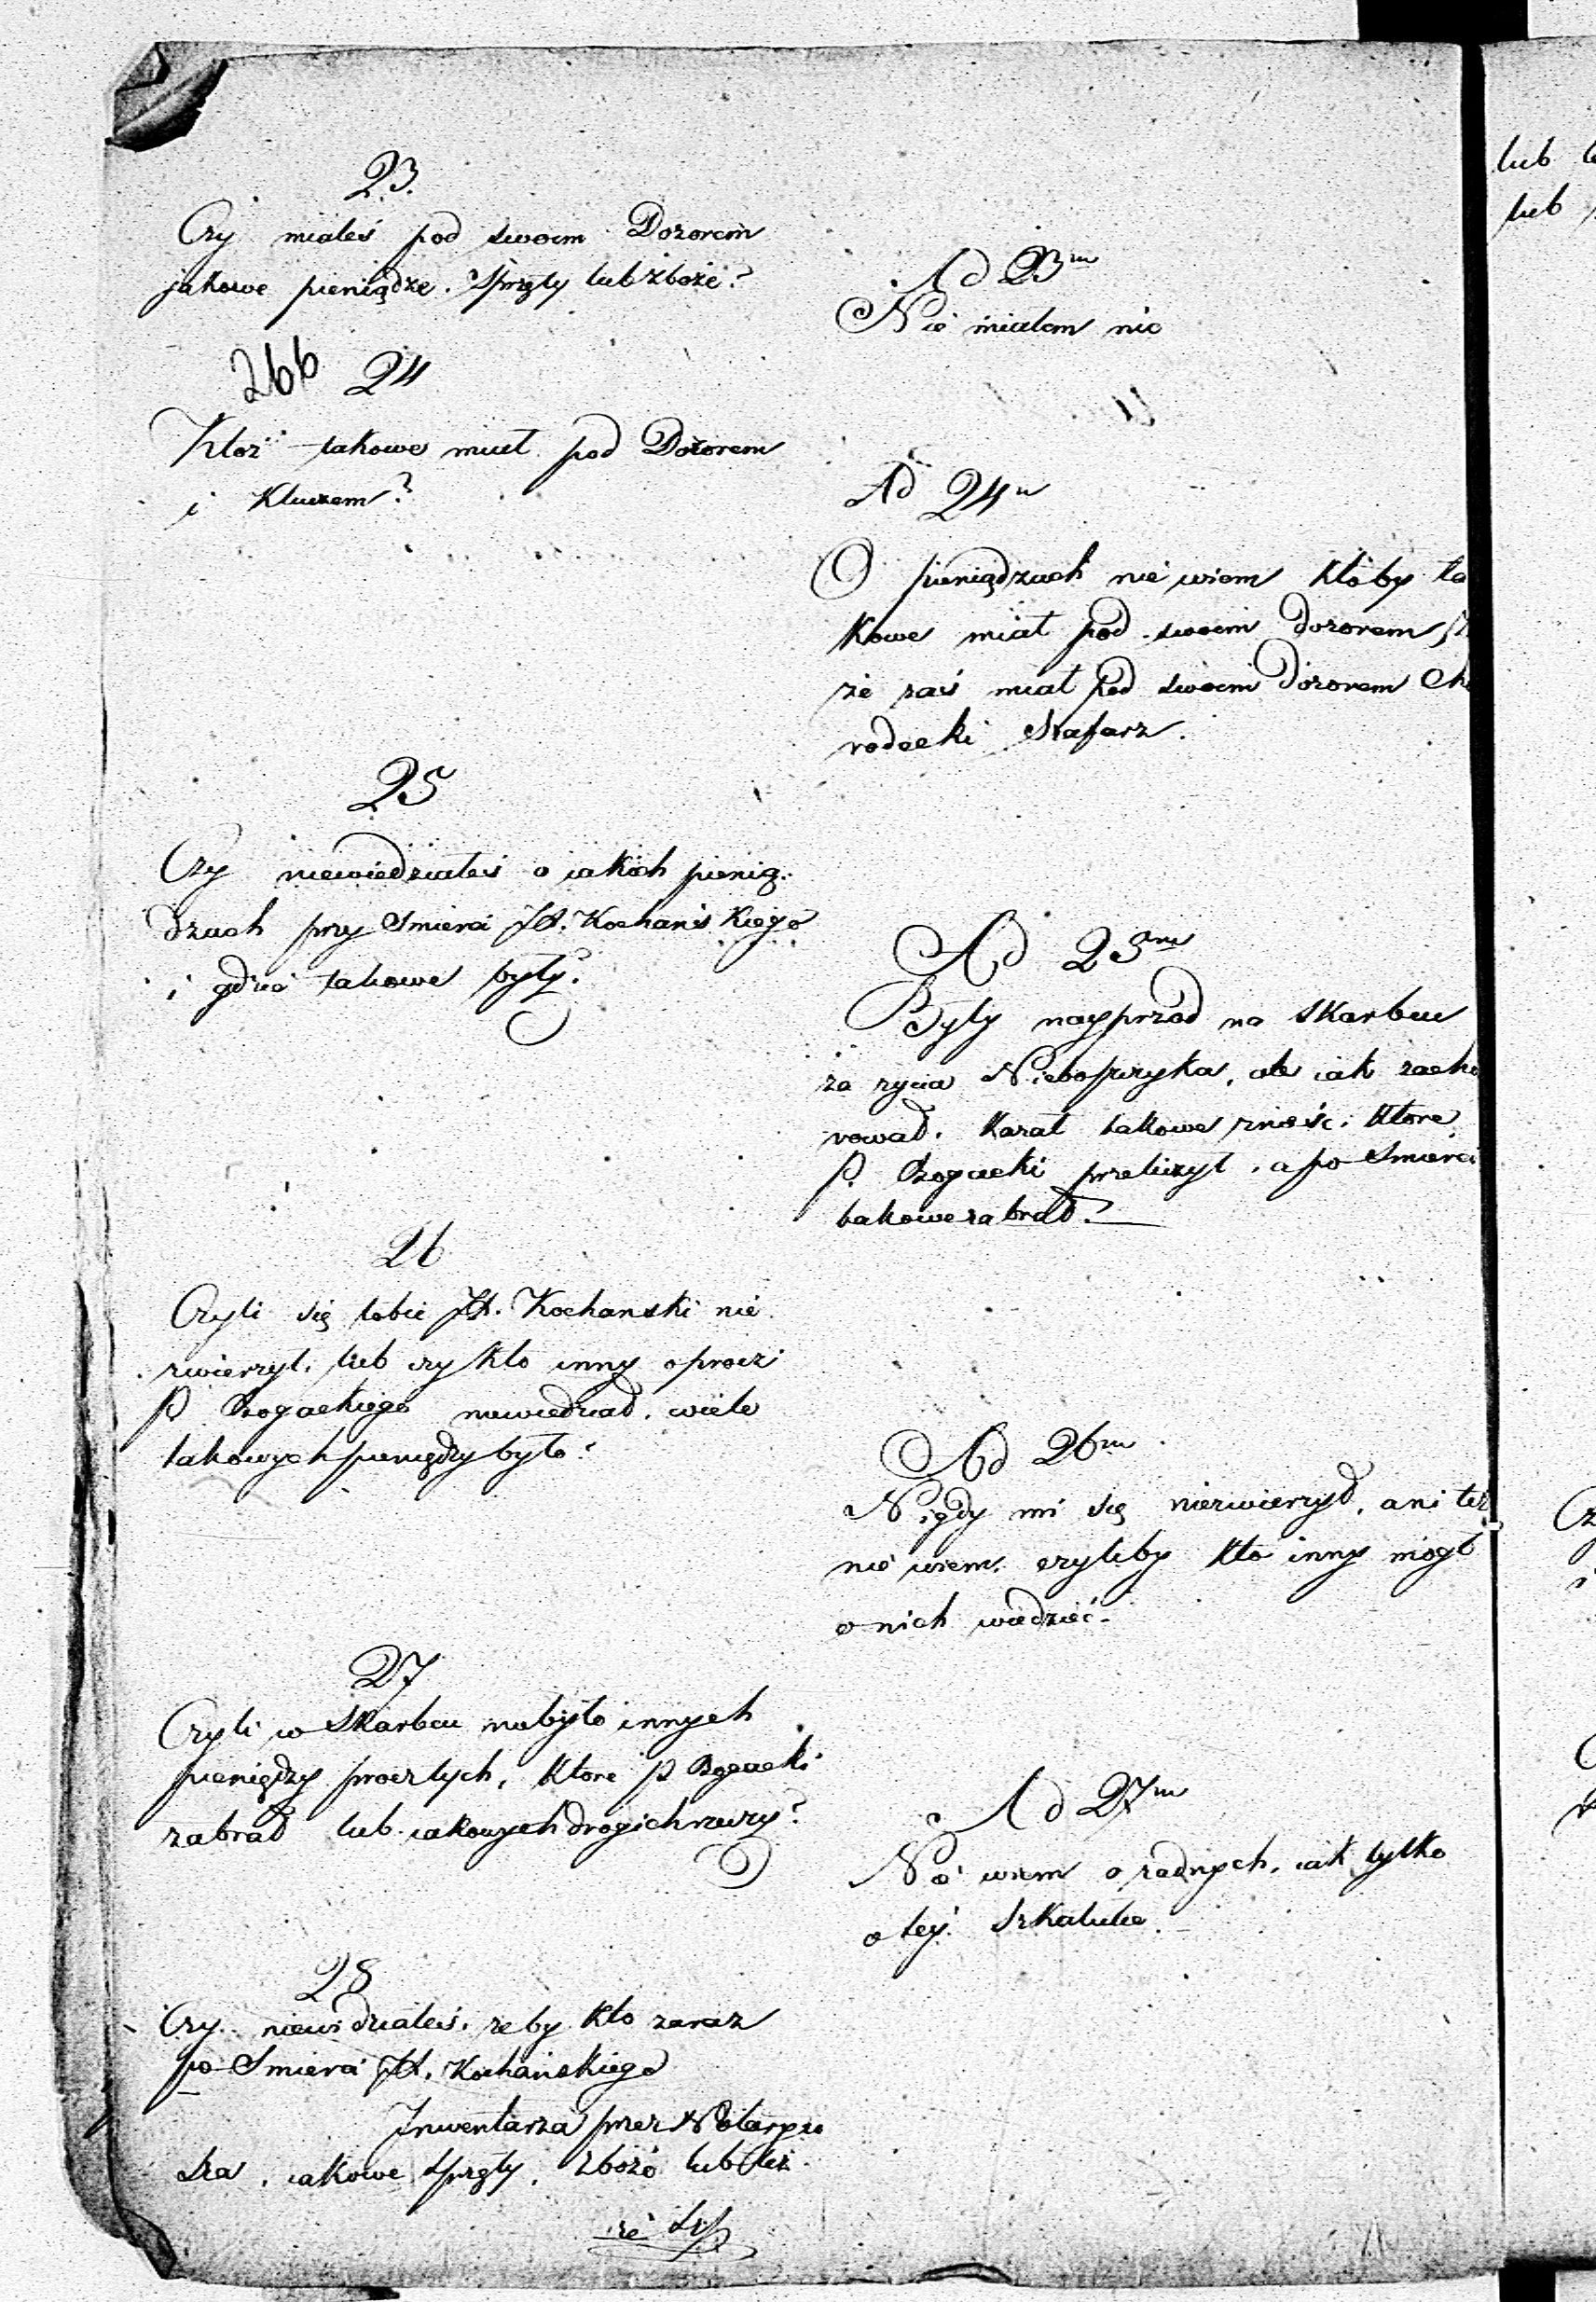 23.
Czy miałeś pod swoim Dozorem
jakowe pieniądze, Sprzęty lub zboże?
Ad 23m
Nie miałem nic
266
24
Ktoż takowe miał pod Dozorem
i Kluczem?
Ad 24m
O pieniądzach nie wiem któby ta
kowe miał pod swoim dozorem
że zaś miał pod swoim dozorem
rodecki Szafarz.
25
Czy niewiedziałeś o iakich pienią-
dzach przy Smierci JX. Kochańskiego
i gdzie takowe były?
Ad 25m
Były nayprzód na Skarbcu
za życia Nieboszczyka, ale iak zacho
rował, kazał takowe znieść, które
P. Bogacki przeliczył, a po Smierci
takowe zabrał.
26
Czyli się tobie JX. Kochanski nie
zwierzył, lub czy kto inny oprócz
P Bogackiego niewiedział, wiele
takowych pieniędzy było?
Ad 26m
Nigdy mi się niezwierzył, ani też
nie wiem, czyliby kto inny mógł
o nich wiedzieć.
27
Czyli w Skarbcu niebyło innych
pieniędzy prócz tych, które P Bogacki
zabrał lub iakowych drogich rzeczy?
Ad 27m
Nie wiem o żadnych, iak tylko
o tey Szkatule.
28
Czy niewidziałeś, żeby kto zaraz
po Smierci JX. Kochańskiego
Inwentarza przez Notaryu
sza, iakowe Sprzęty, zboże lub też
lub
lub